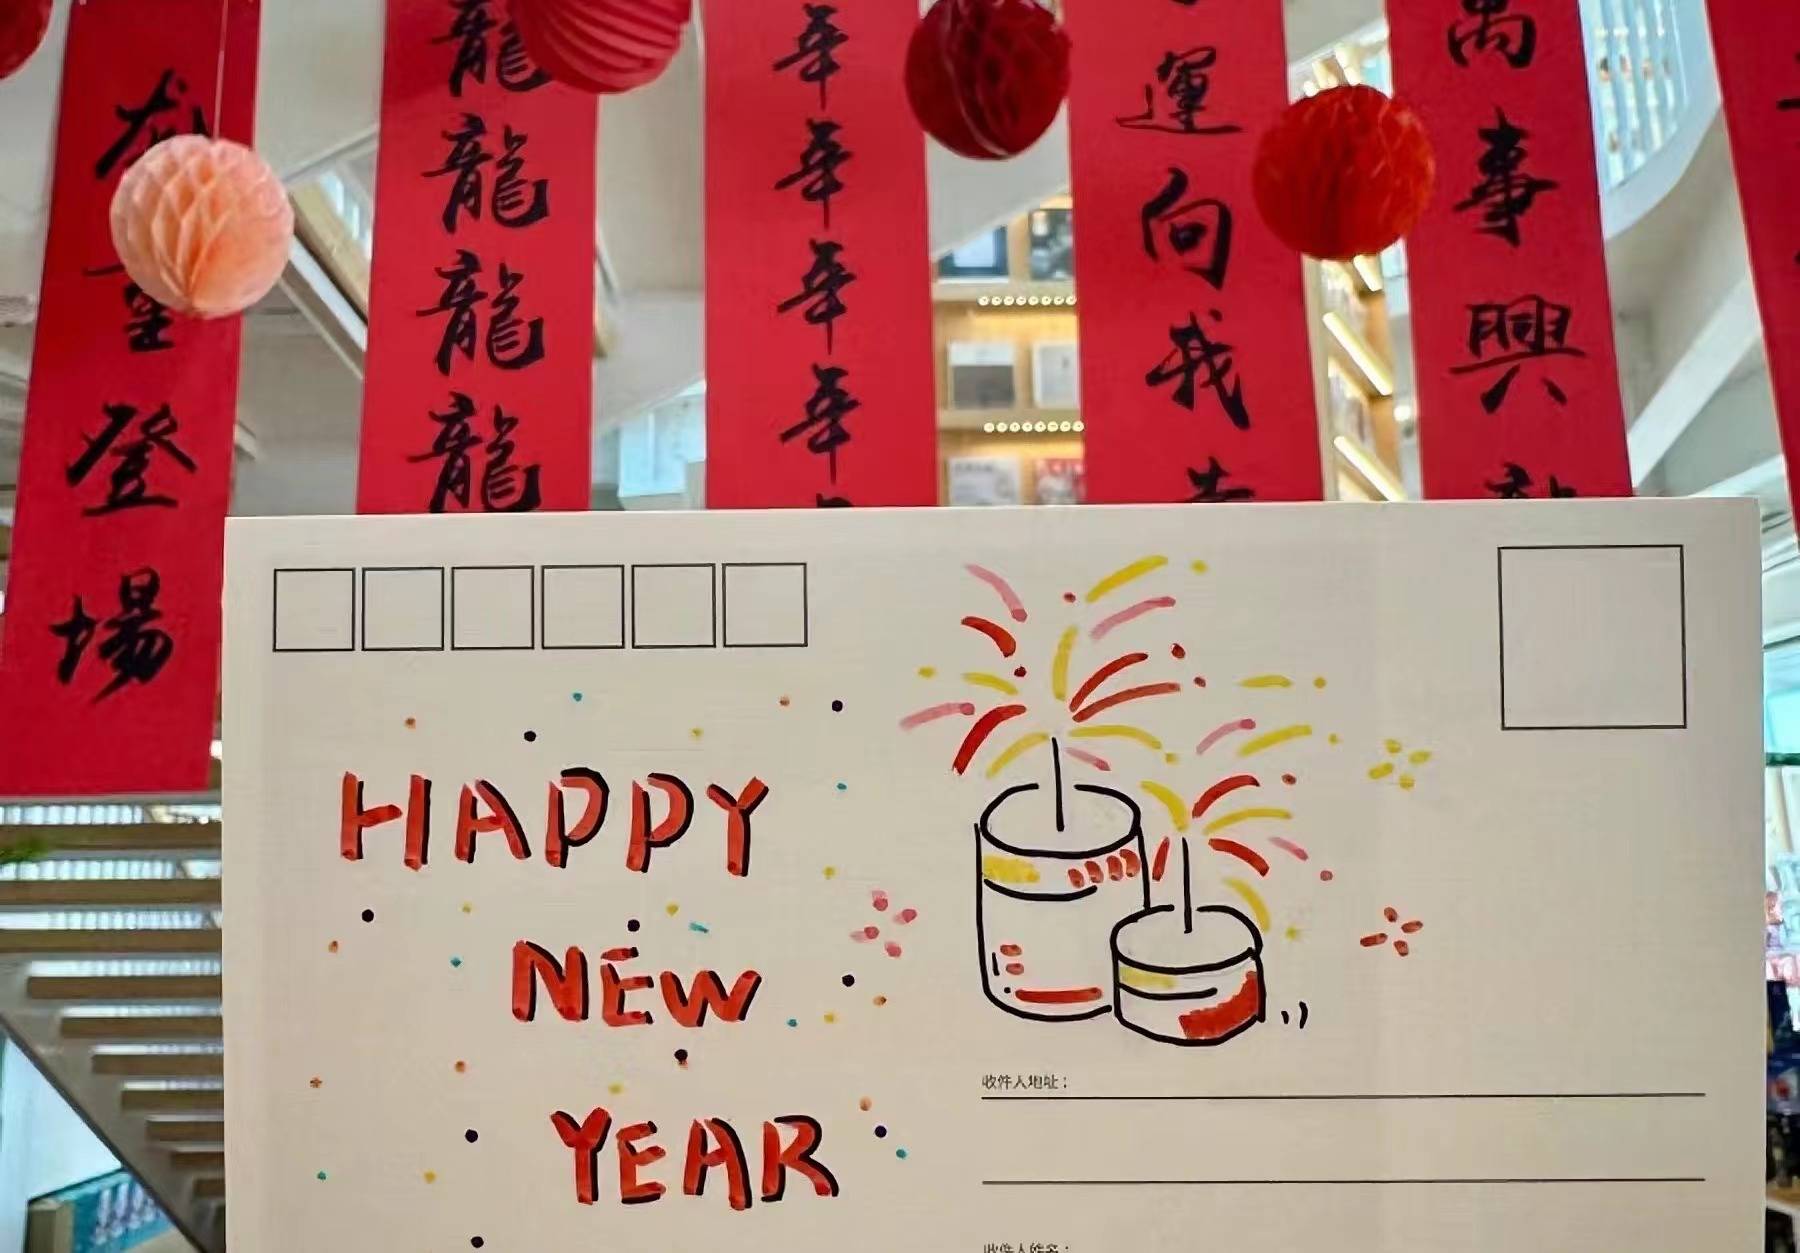 龙重登場
龍龍龍龍
年年年年
運向我
萬事興
HAPPY
NEW
YEAR
收件人地址：
收件人姓名：